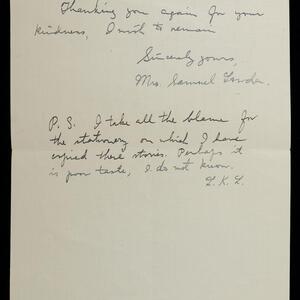 Thanking you again for your
kindness, I wish to remain
Sincerely yours,
Mrs. Samuel
P. S. I take all the blame for
the stationery on which I have
copied these stories. Perhaps it
is poor taste, I do not know.
L. K. L.